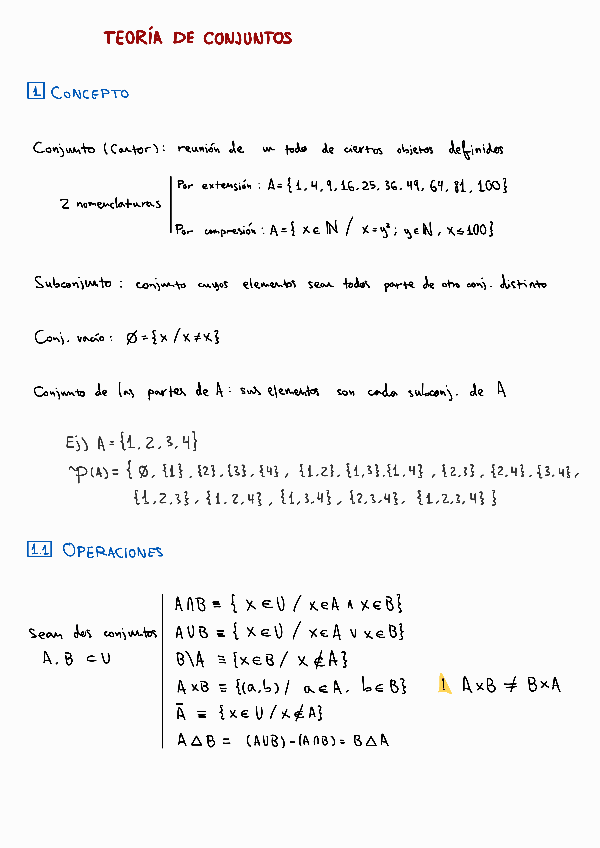 TEORÍA DE CONJUNTOS
1 CONCEPTO
Conjunto (Cantor): reunión de un todo de ciertos objetos definidos
2 nomenclaturas
Por extensión: A={1,4,9,16,25,36,49,64,81,100}
Por compresión: A={x∈ℕ / x=y²; y∈ℕ, x≤100}
Subconjunto: conjunto cuyos elementos sean todos parte de otro conj. distinto
Conj. vacío: ∅={x/x≠x}
Conjunto de las partes de A: sus elementos son cada subconj. de A
Ej) A={1,2,3,4}
P(A)={∅,{1},{2},{3},{4},{1,2},{1,3},{1,4},{2,3},{2,4},{3,4},
{1,2,3},{1,2,4},{1,3,4},{2,3,4},{1,2,3,4}}
1.1 OPERACIONES
Sean dos conjuntos
A,B ⊂ U
A∩B ≡ {x∈U / x∈A ∧ x∈B}
A∪B ≡ {x∈U / x∈A ∨ x∈B}
B\A ≡ {x∈B / x∉A}
A×B ≡ {(a,b) / a∈A, b∈B} ! A×B ≠ B×A
Ā ≡ {x∈U / x∉A}
A△B = (A∪B)-(A∩B) = B△A